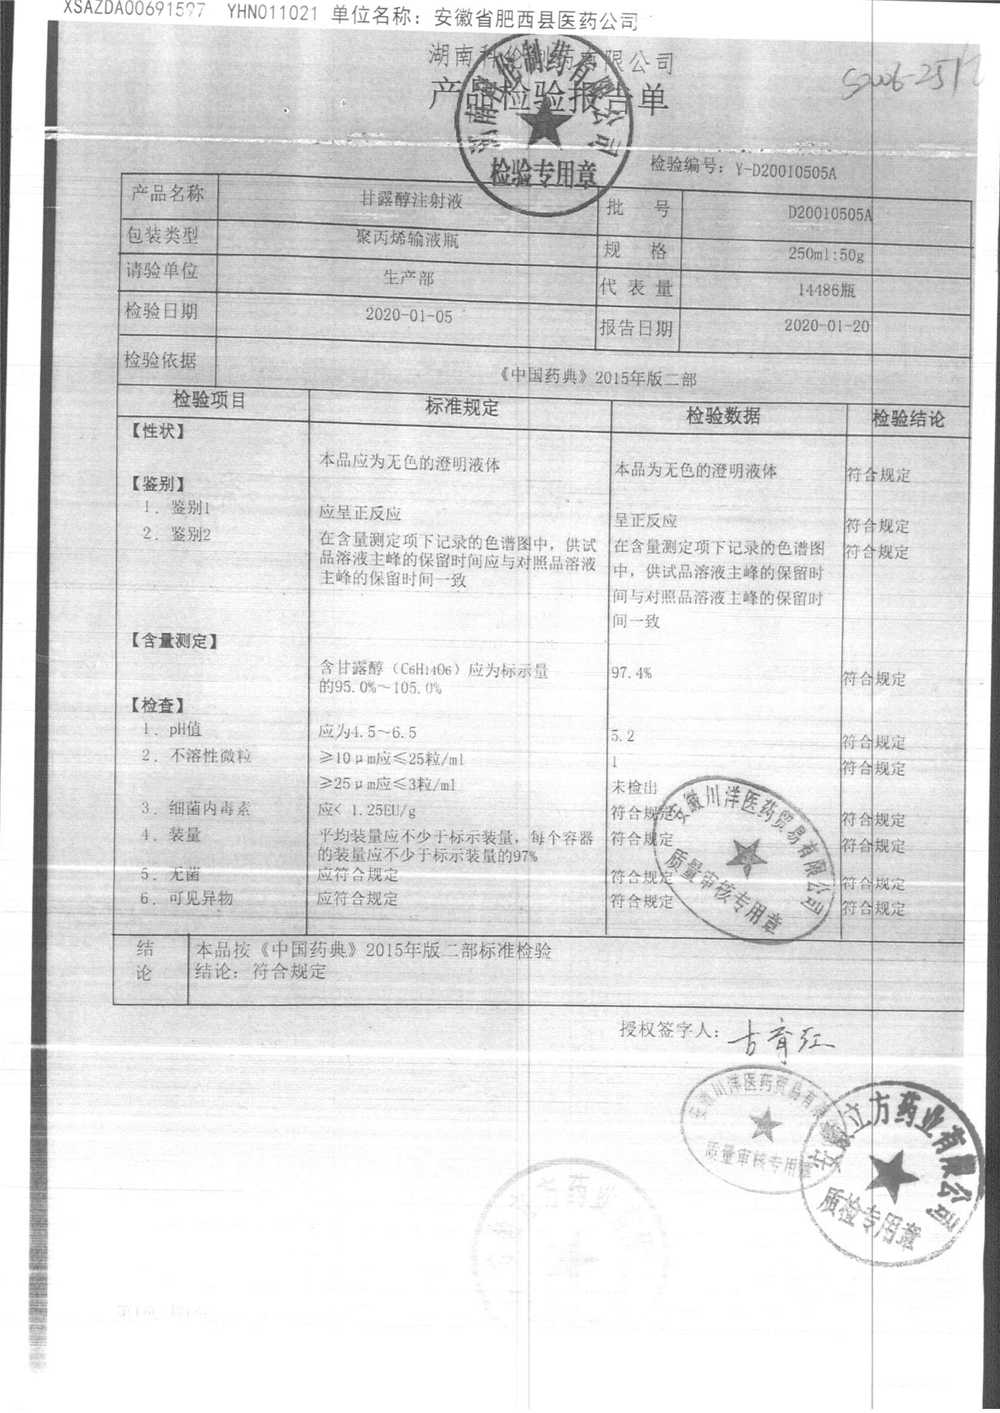 XSAZDA00691597 YHN011021 单位名称：安徽省肥西县医药公司
湖南科伦制药有限公司
产品检验报告单
检验专用章
检验编号：Y-D20010505A
产品名称 甘露醇注射液 批 号 D20010505A
包装类型 聚丙烯输液瓶 规 格 250ml:50g
请验单位 生产部 代 表 量 14486瓶
检验日期 2020-01-05 报告日期 2020-01-20
检验依据 《中国药典》2015年版二部
检验项目 标准规定 检验数据 检验结论
【性状】
本品应为无色的澄明液体 本品为无色的澄明液体 符合规定
【鉴别】
1．鉴别1 应呈正反应 呈正反应 符合规定
2．鉴别2 在含量测定项下记录的色谱图中，供试 在含量测定项下记录的色谱图 符合规定
品溶液主峰的保留时间应与对照品溶液 中，供试品溶液主峰的保留时
主峰的保留时间一致 间与对照品溶液主峰的保留时
间一致
【含量测定】
含甘露醇（C6H14O6）应为标示量 97.4% 符合规定
的95.0%～105.0%
【检查】
1．pH值 应为4.5～6.5 5.2 符合规定
2．不溶性微粒 ≥10μm应≤25粒/ml 1 符合规定
≥25μm应≤3粒/ml 未检出
3．细菌内毒素 应< 1.25EU/g 符合规定 符合规定
4．装量 平均装量应不少于标示装量，每个容器 符合规定 符合规定
的装量应不少于标示装量的97%
5．无菌 应符合规定 符合规定 符合规定
6．可见异物 应符合规定 符合规定 符合规定
安徽川洋医药贸易有限公司
质量审核专用章
结 本品按《中国药典》2015年版二部标准检验
论 结论：符合规定
授权签字人：
安徽川洋医药贸易有限
质量审核专用章
立方药业有限公司
质检专用章